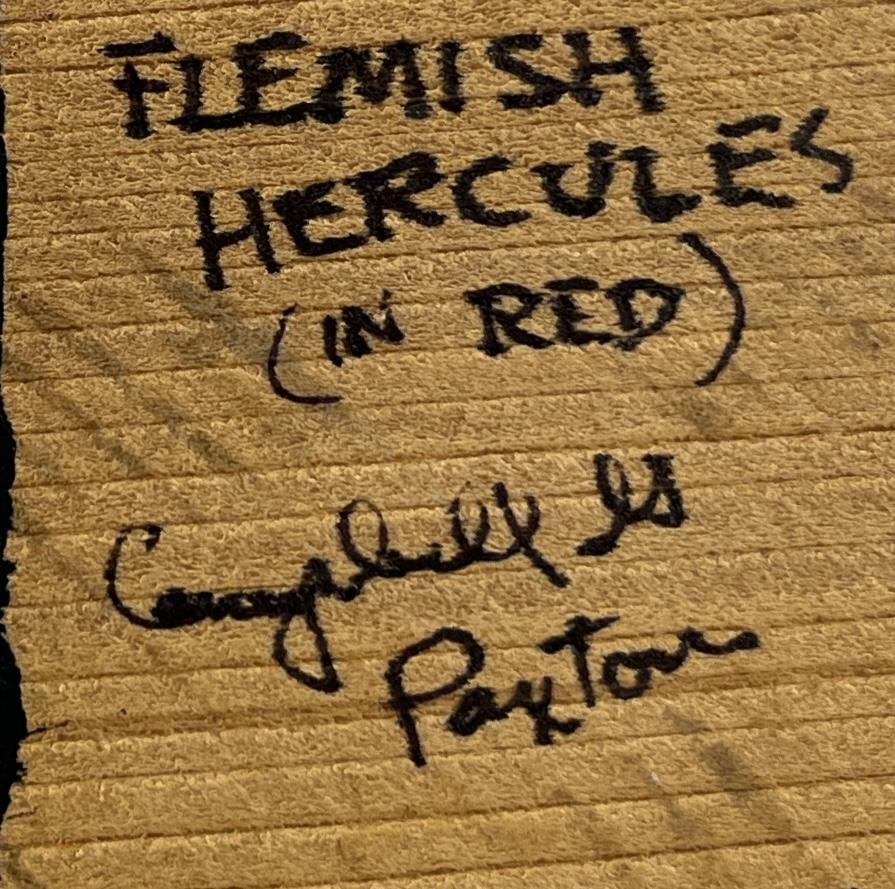 FLEMISH
HERCULES
(IN RED)
Campbell
Paxton